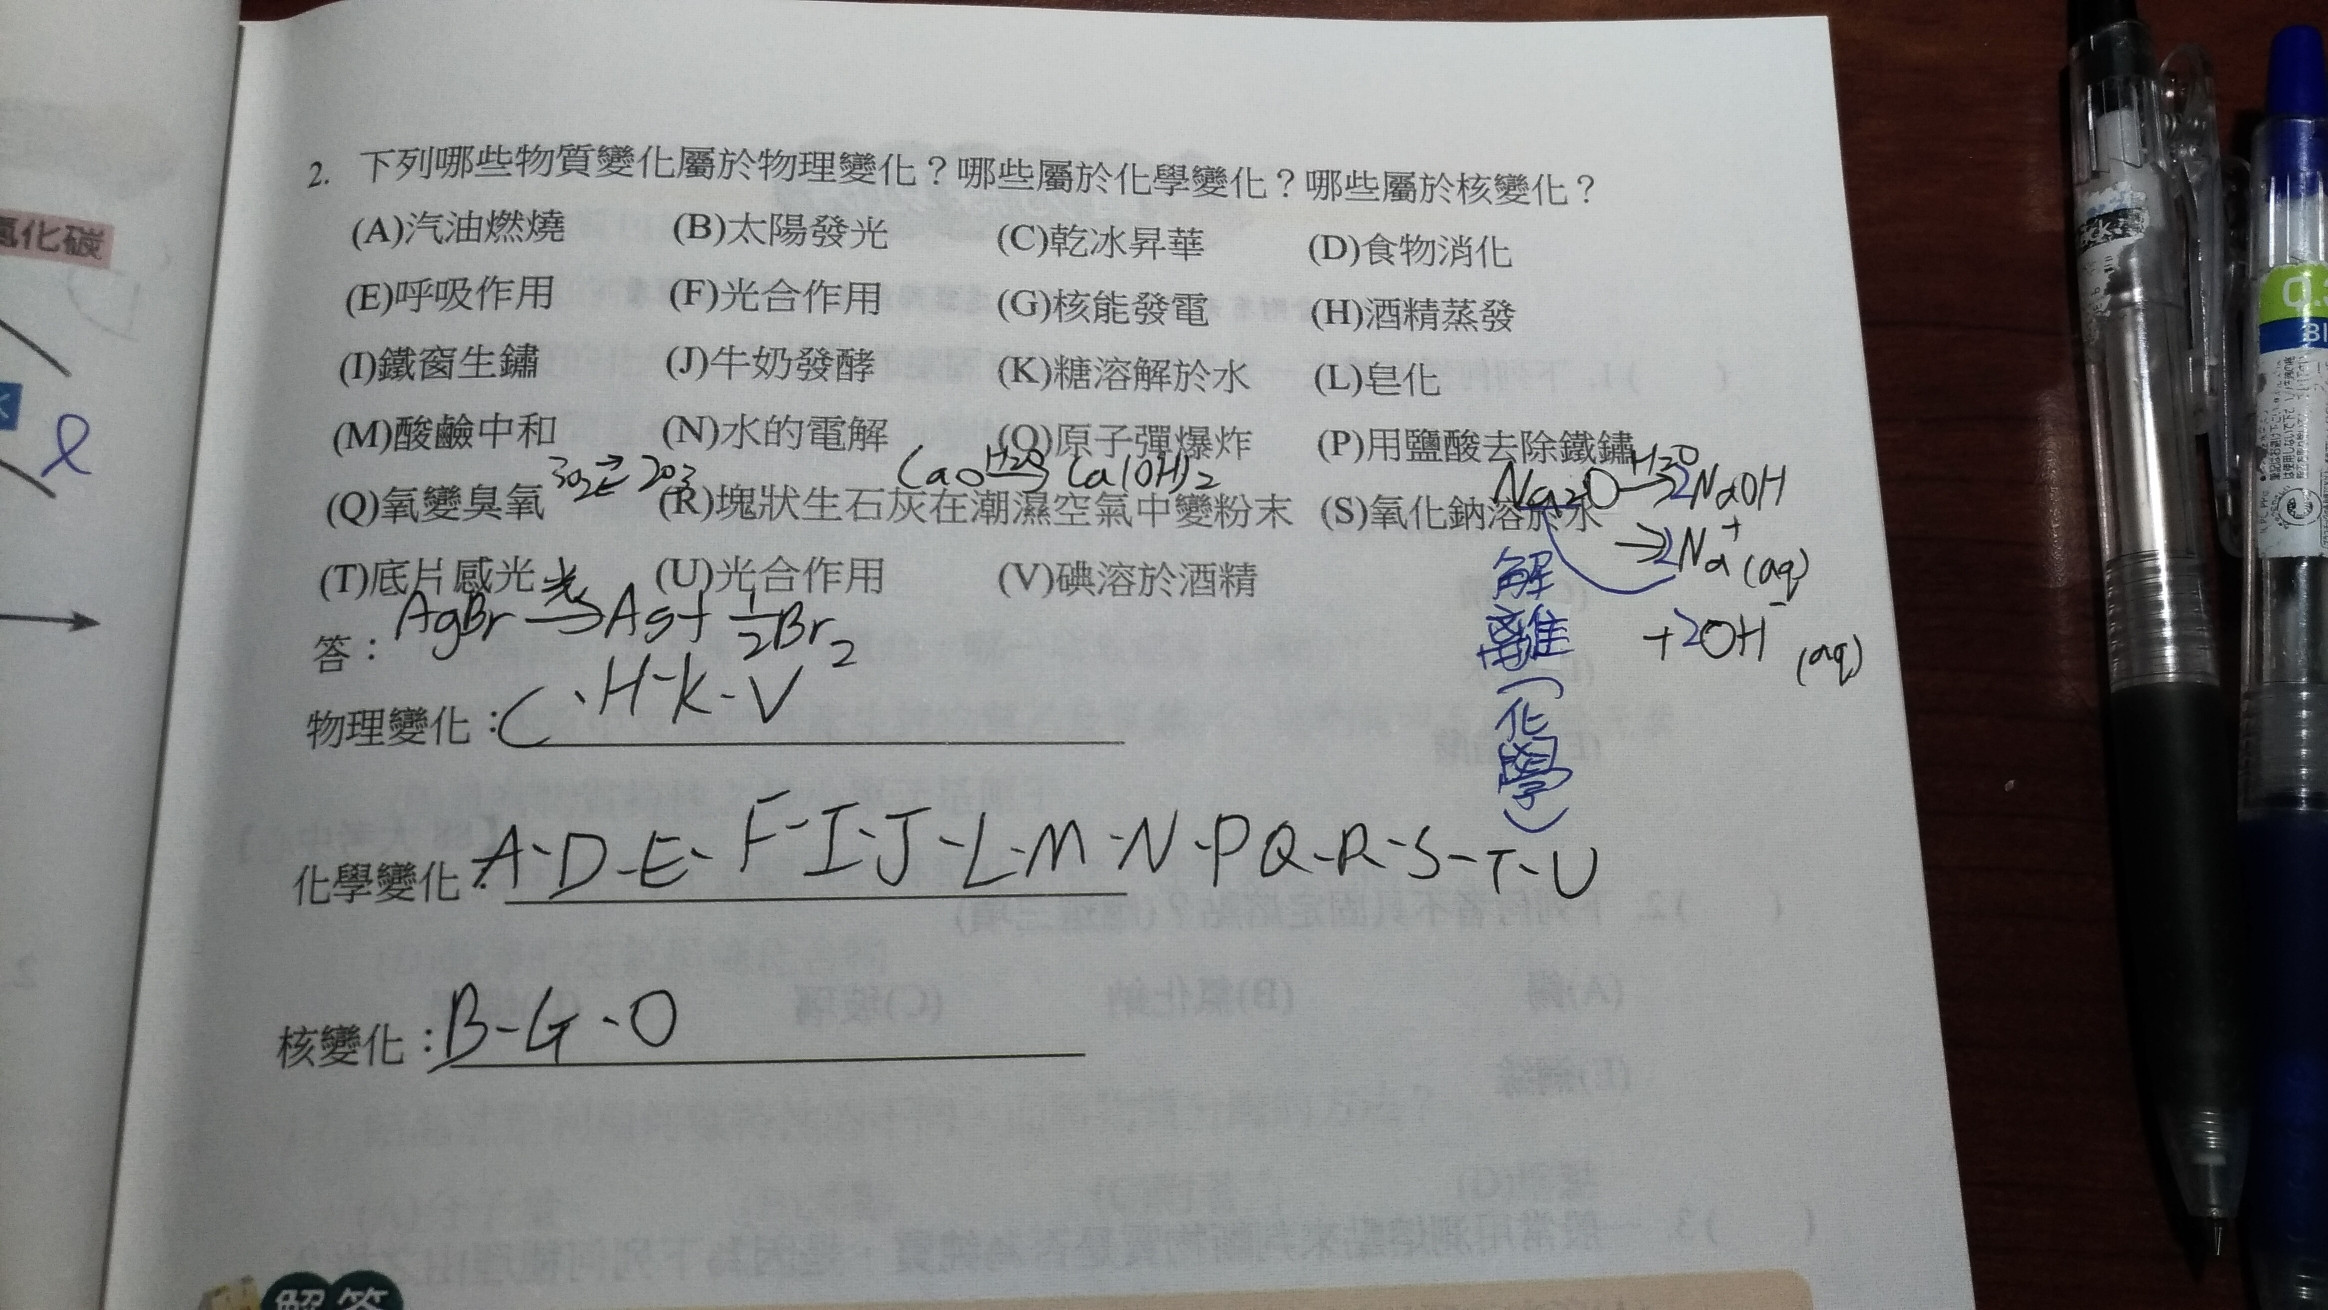 氧化碳
2. 下列哪些物質變化屬於物理變化？哪些屬於化學變化？哪些屬於核變化？
(A)汽油燃燒 (B)太陽發光 (C)乾冰昇華 (D)食物消化
(E)呼吸作用 (F)光合作用 (G)核能發電 (H)酒精蒸發
(I)鐵窗生鏽 (J)牛奶發酵 (K)糖溶解於水 (L)皂化
(M)酸鹼中和 (N)水的電解 (O)原子彈爆炸 (P)用鹽酸去除鐵鏽
3O2 ⇌ 2O3 CaO —H2O→ Ca(OH)2 Na2O —H2O→ 2NaOH
(Q)氧變臭氧 (R)塊狀生石灰在潮濕空氣中變粉末 (S)氧化鈉溶於水
→2Na+(aq)
(T)底片感光 (U)光合作用 (V)碘溶於酒精
AgBr —光→ Ag + 1/2 Br2
+2OH-(aq)
解離(化學)
答：
物理變化：C、H、K、V
化學變化：A、D、E、F、I、J、L、M、N、P Q、R、S、T、U
核變化：B、G、O
解答